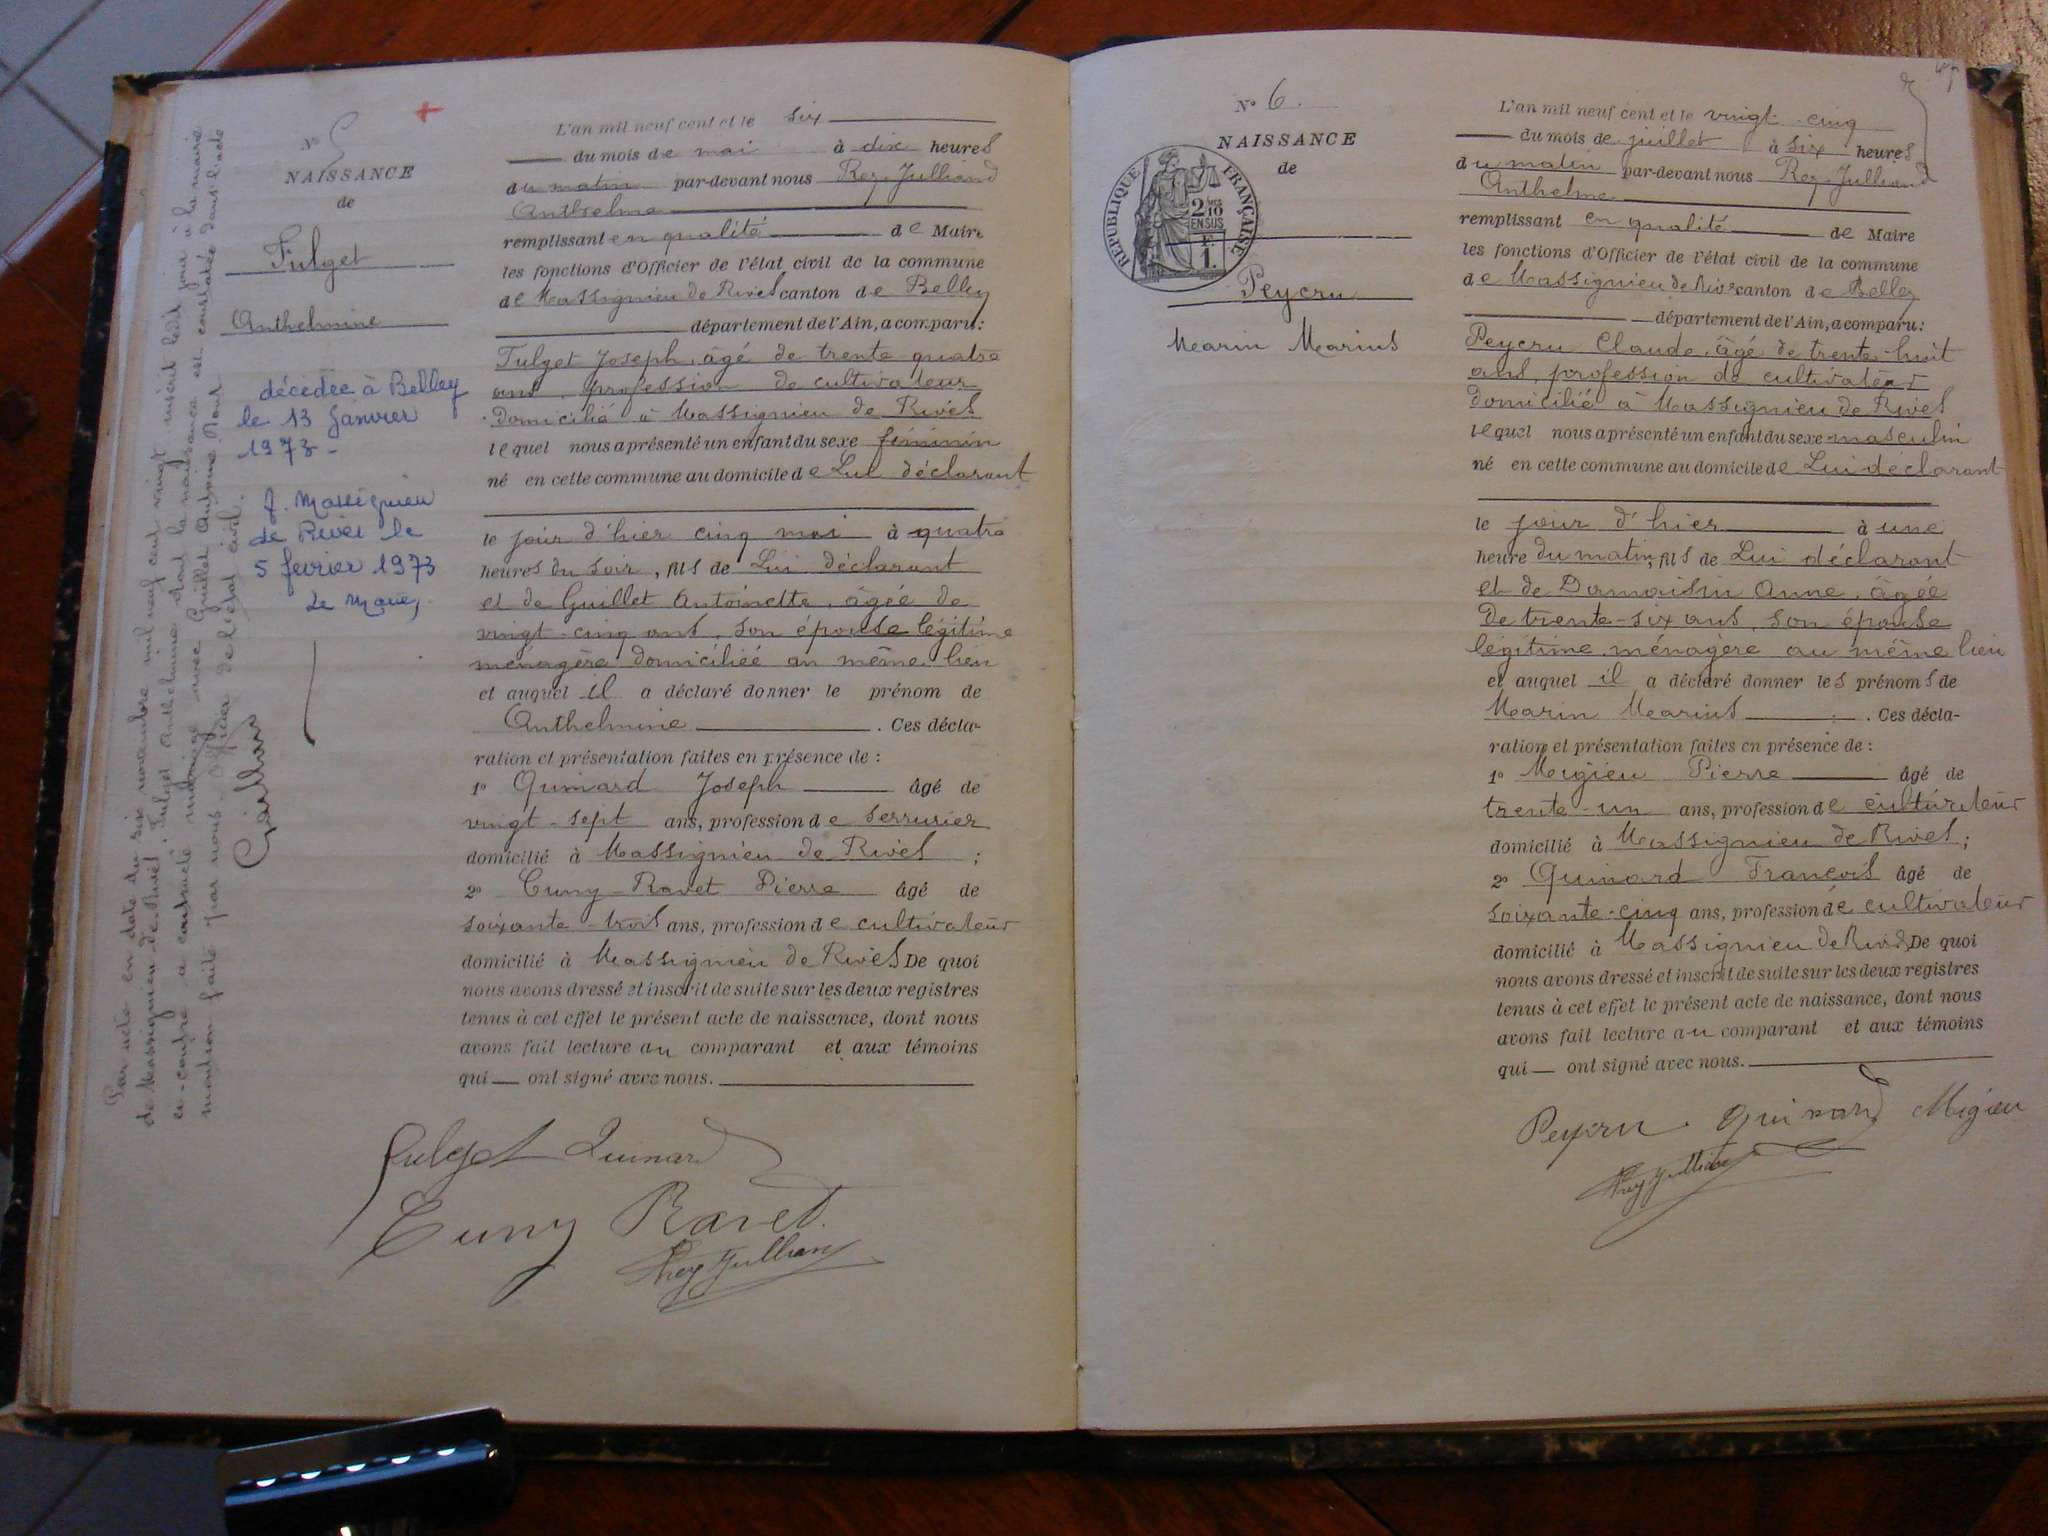 Par acte en date du six novembre mil neuf cent vingt inscrit ledit jour à la mairie
de Massignieu de Rives Fulget Anthelmine dont la naissance est constatée dans l'acte
ci-contre a contracté mariage avec Guillet Antoine. Dont
mention faite par nous Officier de l'état civil.
Guillet
N° 5
NAISSANCE
de
Fulget
Anthelmine
décédée à Belley
le 13 janvier
1973 -
Massignieu
de Rives le
5 fevrier 1973
Le Maire,
L'an mil neuf cent et le six
du mois de mai à dix heures
du matin par-devant nous Rey-Julliand
Anthelme
remplissant en qualité de Maire
les fonctions d'Officier de l'état civil de la commune
de Massignieu de Rives canton de Belley
département de l'Ain, a comparu:
Fulget Joseph, âgé de trente quatre
ans, profession de cultivateur
domicilié à Massignieu de Rives
lequel nous a présenté un enfant du sexe féminin
né en cette commune au domicile de Lui déclarant
le jour d'hier cinq mai à quatre
heures du soir, fils de Lui déclarant
et de Guillet Antoinette, âgée de
vingt-cinq ans, son épouse légitime
ménagère domiciliée au même lieu
et auquel il a déclaré donner le prénom de
Anthelmine . Ces décla-
ration et présentation faites en présence de :
1° Quinard Joseph âgé de
vingt-sept ans, profession de serrurier
domicilié à Massignieu de Rives ;
2° Cuny-Ravet Pierre âgé de
soixante trois ans, profession de cultivateur
domicilié à Massignieu de Rives De quoi
nous avons dressé et inscrit de suite sur les deux registres
tenus à cet effet le présent acte de naissance, dont nous
avons fait lecture au comparant et aux témoins
qui — ont signé avec nous.
Fulget Quinard
Cuny Ravet
Rey Jullian
N° 6.
NAISSANCE
de
RÉPUBLIQUE FRANÇAISE
2/10
EN SUS
1 F.
Peycru
Marin Marius
L'an mil neuf cent et le vingt-cinq
du mois de juillet à six heures
du matin par-devant nous Rey-Julliand
Anthelme
remplissant en qualité de Maire
les fonctions d'Officier de l'état civil de la commune
de Massignieu de Rives canton de Belley
département de l'Ain, a comparu:
Peycru Claude, âgé de trente-huit
ans, profession de cultivateur
domicilié à Massignieu de Rives
lequel nous a présenté un enfant du sexe masculin
né en cette commune au domicile de Lui déclarant
le jour d'hier à une
heure du matin, fils de Lui déclarant
et de Damaisin Anne, âgée
de trente-six ans, son épouse
légitime ménagère au même lieu
et auquel il a déclaré donner les prénoms de
Marin Marius . Ces décla-
ration et présentation faites en présence de :
1° Migieu Pierre âgé de
trente-un ans, profession de cultivateur
domicilié à Massignieu de Rives ;
2° Quinard François âgé de
soixante-cinq ans, profession de cultivateur
domicilié à Massignieu de Rives De quoi
nous avons dressé et inscrit de suite sur les deux registres
tenus à cet effet le présent acte de naissance, dont nous
avons fait lecture au comparant et aux témoins
qui — ont signé avec nous.
Peycru Quinard Migieu
Rey Jullian